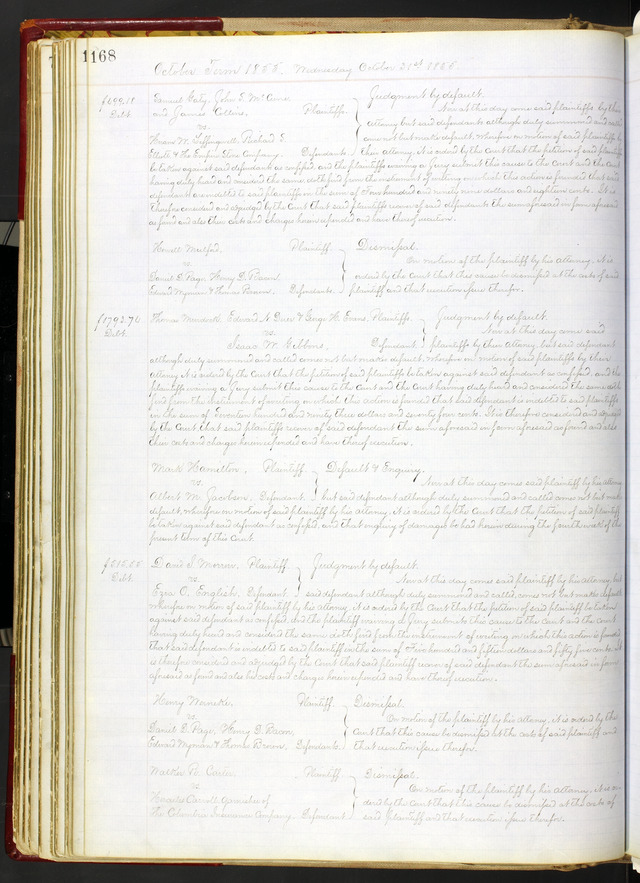 1168
October Term 1855. Wednesday October 31st 1855.
Samuel Gaty, John S. McCune
and James Collins, Plaintiffs
vs.
Richard S.
Elliott & The Empire Stove Company. Defendants
Judgment by default.
Now at this day come said plaintiffs by their
attorney but said defendants although duly summoned and
came not but make default. Wherefore on motion of said plaintiffs by
their attorney, it is ordered by the Court that the petition of said plaintiffs
be taken against said defendants as confessed, and the plaintiffs waiving a Jury submit this cause to the Court and the Court
having duly heard and considered the same doth find from the instrument of writing on which this action is founded that said
defendants are indebted to said plaintiffs in the sum of hundred and ninety nine dollars and eighteen cents. It is
therefore considered and adjudged by the Court that said plaintiffs recover of said defendants the sum aforesaid in form aforesaid
as found and also their costs and charges herein expended and have thereof execution.
Plaintiff
vs.
Daniel D. Page, Henry D. Bacon
Edward Wyman & Thomas Brown. Defendants.
Dismissal.
On motion of the plaintiff by his Attorney, it is
ordered by the Court that this cause be dismissed at the costs of said
plaintiff and that execution issue therefor.
$1793.70
Debt.
Thomas Edward N. & George H. Evans, Plaintiffs
vs.
Isaac W. Gibbons, Defendant
Judgment by default.
Now at this day come said
plaintiffs by their Attorney, but said defendant
although duly summoned and called comes not but makes default, wherefore on motion of said plaintiffs by their
attorney it is ordered by the Court that the petition of said plaintiffs be taken against said defendant as confessed, and the
plaintiffs waiving a Jury submit this cause to the Court and the Court having duly heard and considered the same doth
find from the instrument of writing on which this action is founded that said defendant is indebted to said plaintiffs
in the sum of Seventeen hundred and ninety three dollars and seventy four cents. It is therefore considered and adjudged
by the Court that said plaintiffs recover of said defendant the sum aforesaid in form aforesaid as found and also
their costs and charges herein expended and have thereof execution.
Mark Hamilton, Plaintiff
vs.
Albert M. Jacobson, Defendant.
Default & Enquiry.
Now at this day comes said plaintiff by his attorney
but said defendant although duly summoned and called comes not but makes
default, wherefore on motion of said plaintiff by his attorney. it is ordered by the Court that the petition of said plaintiff
be taken against said defendant as confessed, and that enquiry of damages be had herein during the fourth week of the
present term of this Court.
$515.55
Debt.
David S. Morrow, Plaintiff
vs.
Ezra O. English, Defendant
Judgment by default.
Now at this day comes said plaintiff by his attorney, but
said defendant although duly summoned and called, comes not but makes default
wherefore on motion of said plaintiff by his Attorney. it is ordered by the Court that the petition of said plaintiff be taken
against said defendant as confessed. and the plaintiff waiving a Jury submits this cause to the Court and the Court
having duly heard and considered the same doth find from the instrument of writing on which this action is founded
that said defendant is indebted to said plaintiff in the sum of Five hundred and fifteen dollars and fifty five cents. It
is therefore considered and adjudged by the Court that said plaintiff recover of said defendant the sum aforesaid in form
aforesaid as found and also his costs and charges herein expended and have thereof execution.
Henry Plaintiff
vs.
Daniel D. Page, Henry D. Bacon,
Edward Wyman & Thomas Brown, Defendants.
Dismissal.
On motion of the plaintiff by his attorney, it is ordered by the
Court that this cause be dismissed at the costs of said plaintiff and
that execution issue therefor.
Walter R. Carter, Plaintiff
vs.
Carroll Garnishee of
The Columbia Insurance Company, Defendant
Dismissal.
On motion of the plaintiff by his Attorney, it is or-
dered by the Court that this cause be dismissed at the costs of
said plaintiff and that execution issue therefor.